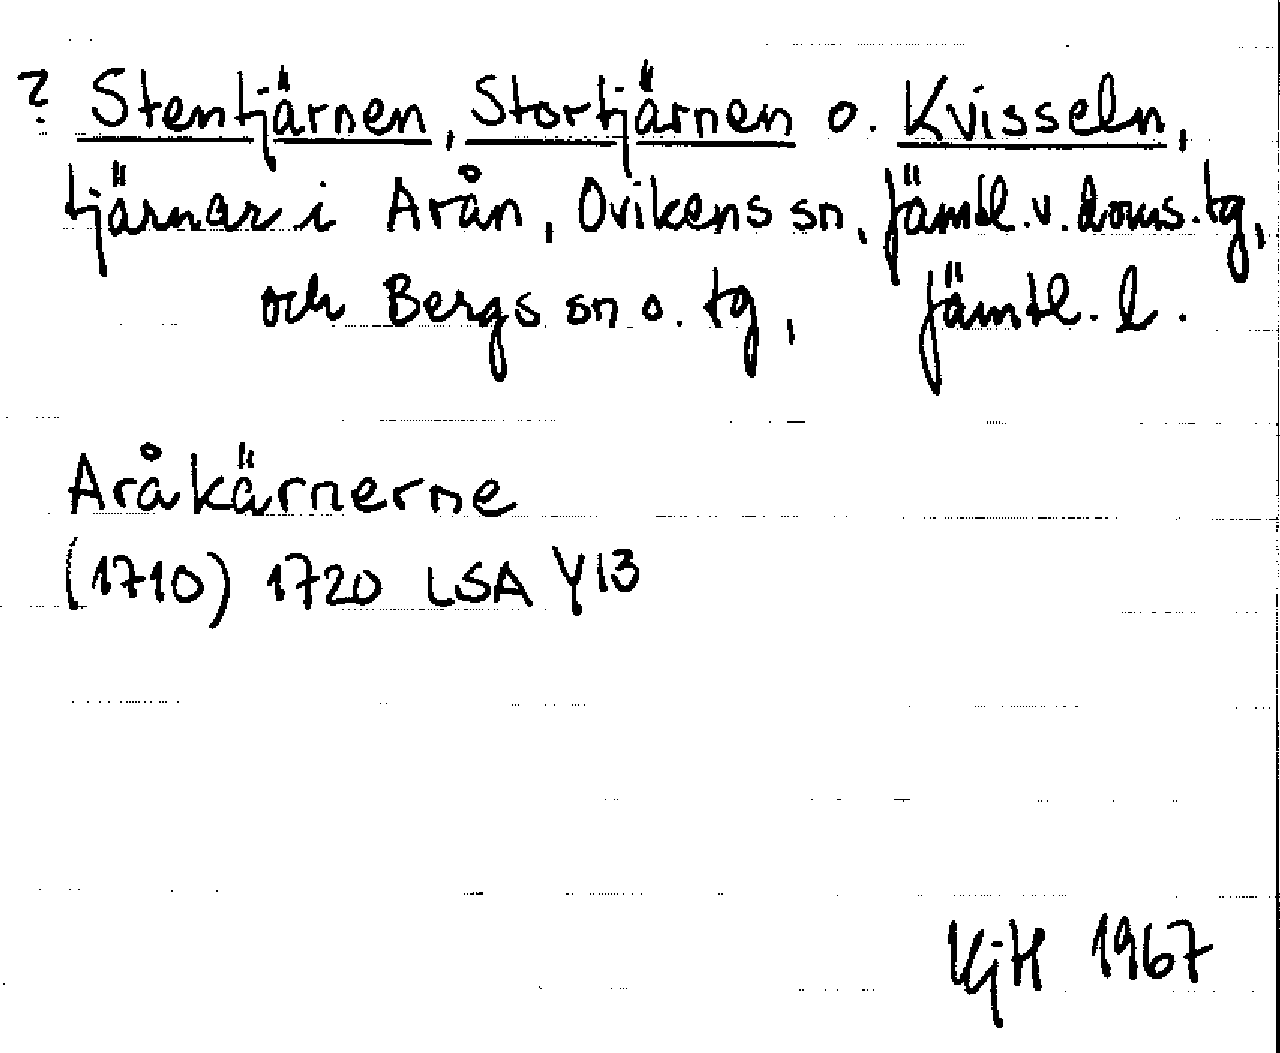 ? Stentjärnen, Stortjärnen o. Kvisseln,
tjärnar i Arån, Ovikens sn, Jämtl. v. doms. tg,
och Bergs sn o. tg, Jämtl. l.
Aråkärnerne
(1710) 1720 LSA Y13
KjH 1967